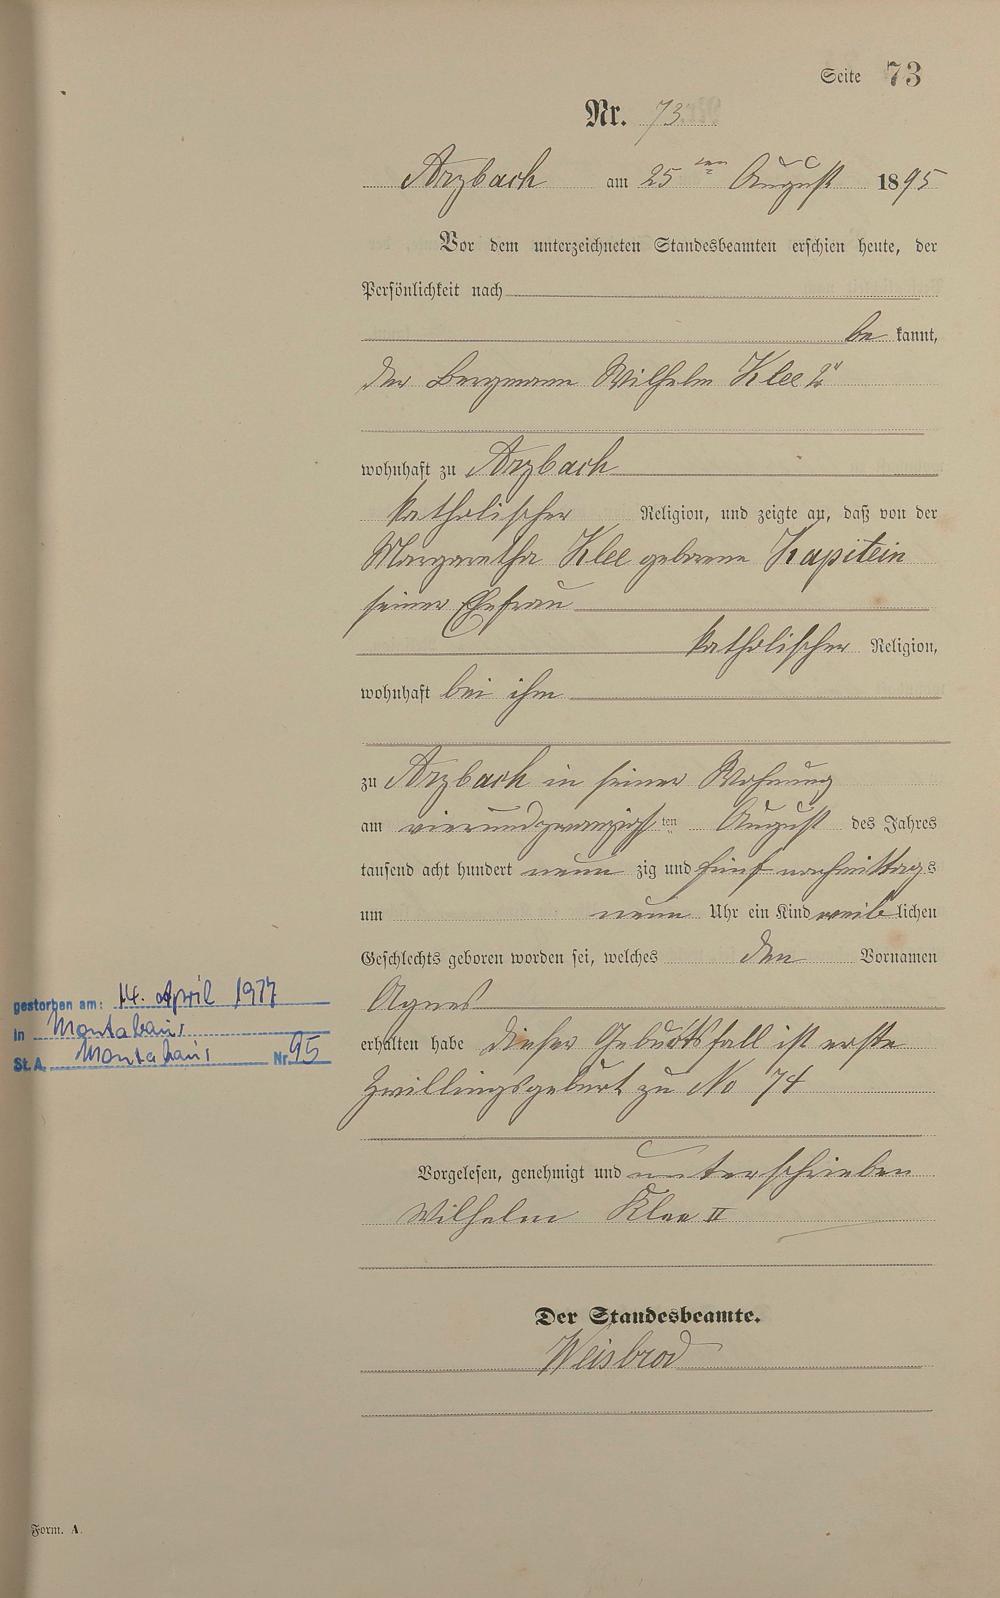 Seite 73
Nr. 73
Arzbach am 25ten August 1895
Vor dem unterzeichneten Standesbeamten erschien heute, der
Persönlichkeit nach
be kannt,
der Bergmann Wilhelm Klee 2r
wohnhaft zu Arzbach
katholischer Religion, und zeigte an, daß von der
Margaretha Klee geborene Kapitein
seiner Ehefrau
katholischer Religion,
wohnhaft bei ihm
zu Arzbach in seiner Wohnung
am vierundzwanzigsten August des Jahres
tausend acht hundert neun zig und fünf nachmittags
um neun Uhr ein Kind weiblichen
Geschlechts geboren worden sei, welches den Vornamen
Agnes
erhalten habe dieser Geburtsfall ist erste
Zwillingsgeburt zu No 74
Vorgelesen, genehmigt und unterschrieben
Wilhelm Klee II
Der Standesbeamte.
Weisbrod
gestorben am: 14. April 1977
in Montabaur
St. A. Montabaur Nr. 95
Form. A.